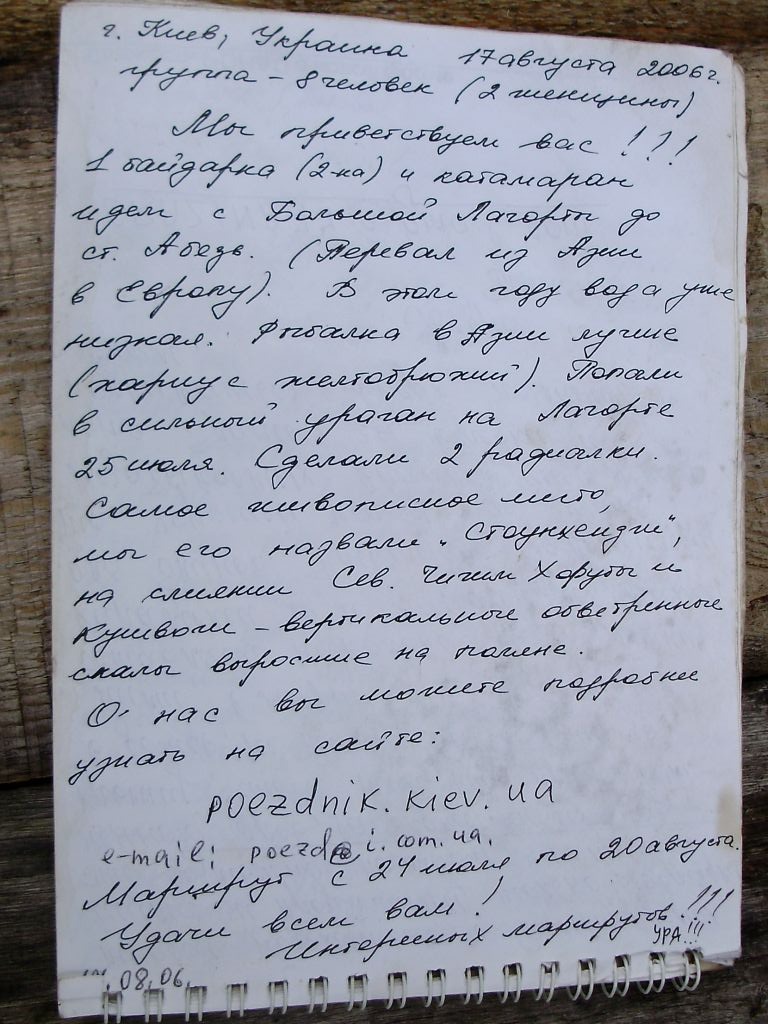 г. Киев, Украина 17 августа 2006 г.
группа – 8 человек (2 женщины)
Мы приветствуем вас !!!
1 байдарка (2-ка) и катамаран
идем с Большой Лагорты до
ст. Абезь. (Перевал из Азии
в Европу). В этом году вода уже
низкая. Рыбалка в Азии лучше
(хариус желтобрюхий). Попали
в сильный ураган на Лагорте
25 июля. Сделали 2 радиалки.
Самое живописное место,
мы его назвали "Стоунхендж",
на слиянии Сев. Хафуты и
– вертикальные обветренные
скалы выросшие на поляне.
О нас вы можете подробнее
узнать на сайте:
poezdnik.kiev.ua
e-mail: poezd@i.com.ua.
Маршрут с 24 июля по 20 августа.
Удачи всем вам!
Интересных маршрутов!!!
УРА!!!
.08.06.